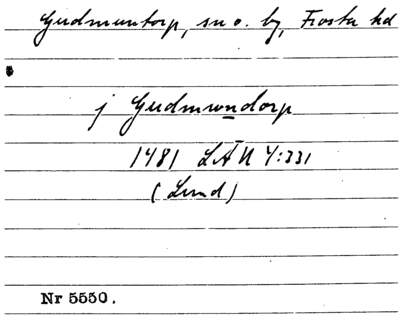 Gudmuntorp, sn o. by, Frosta hd
j Gudmundorp
1481 LÄN 4:331
(Lund)
Nr 5550.